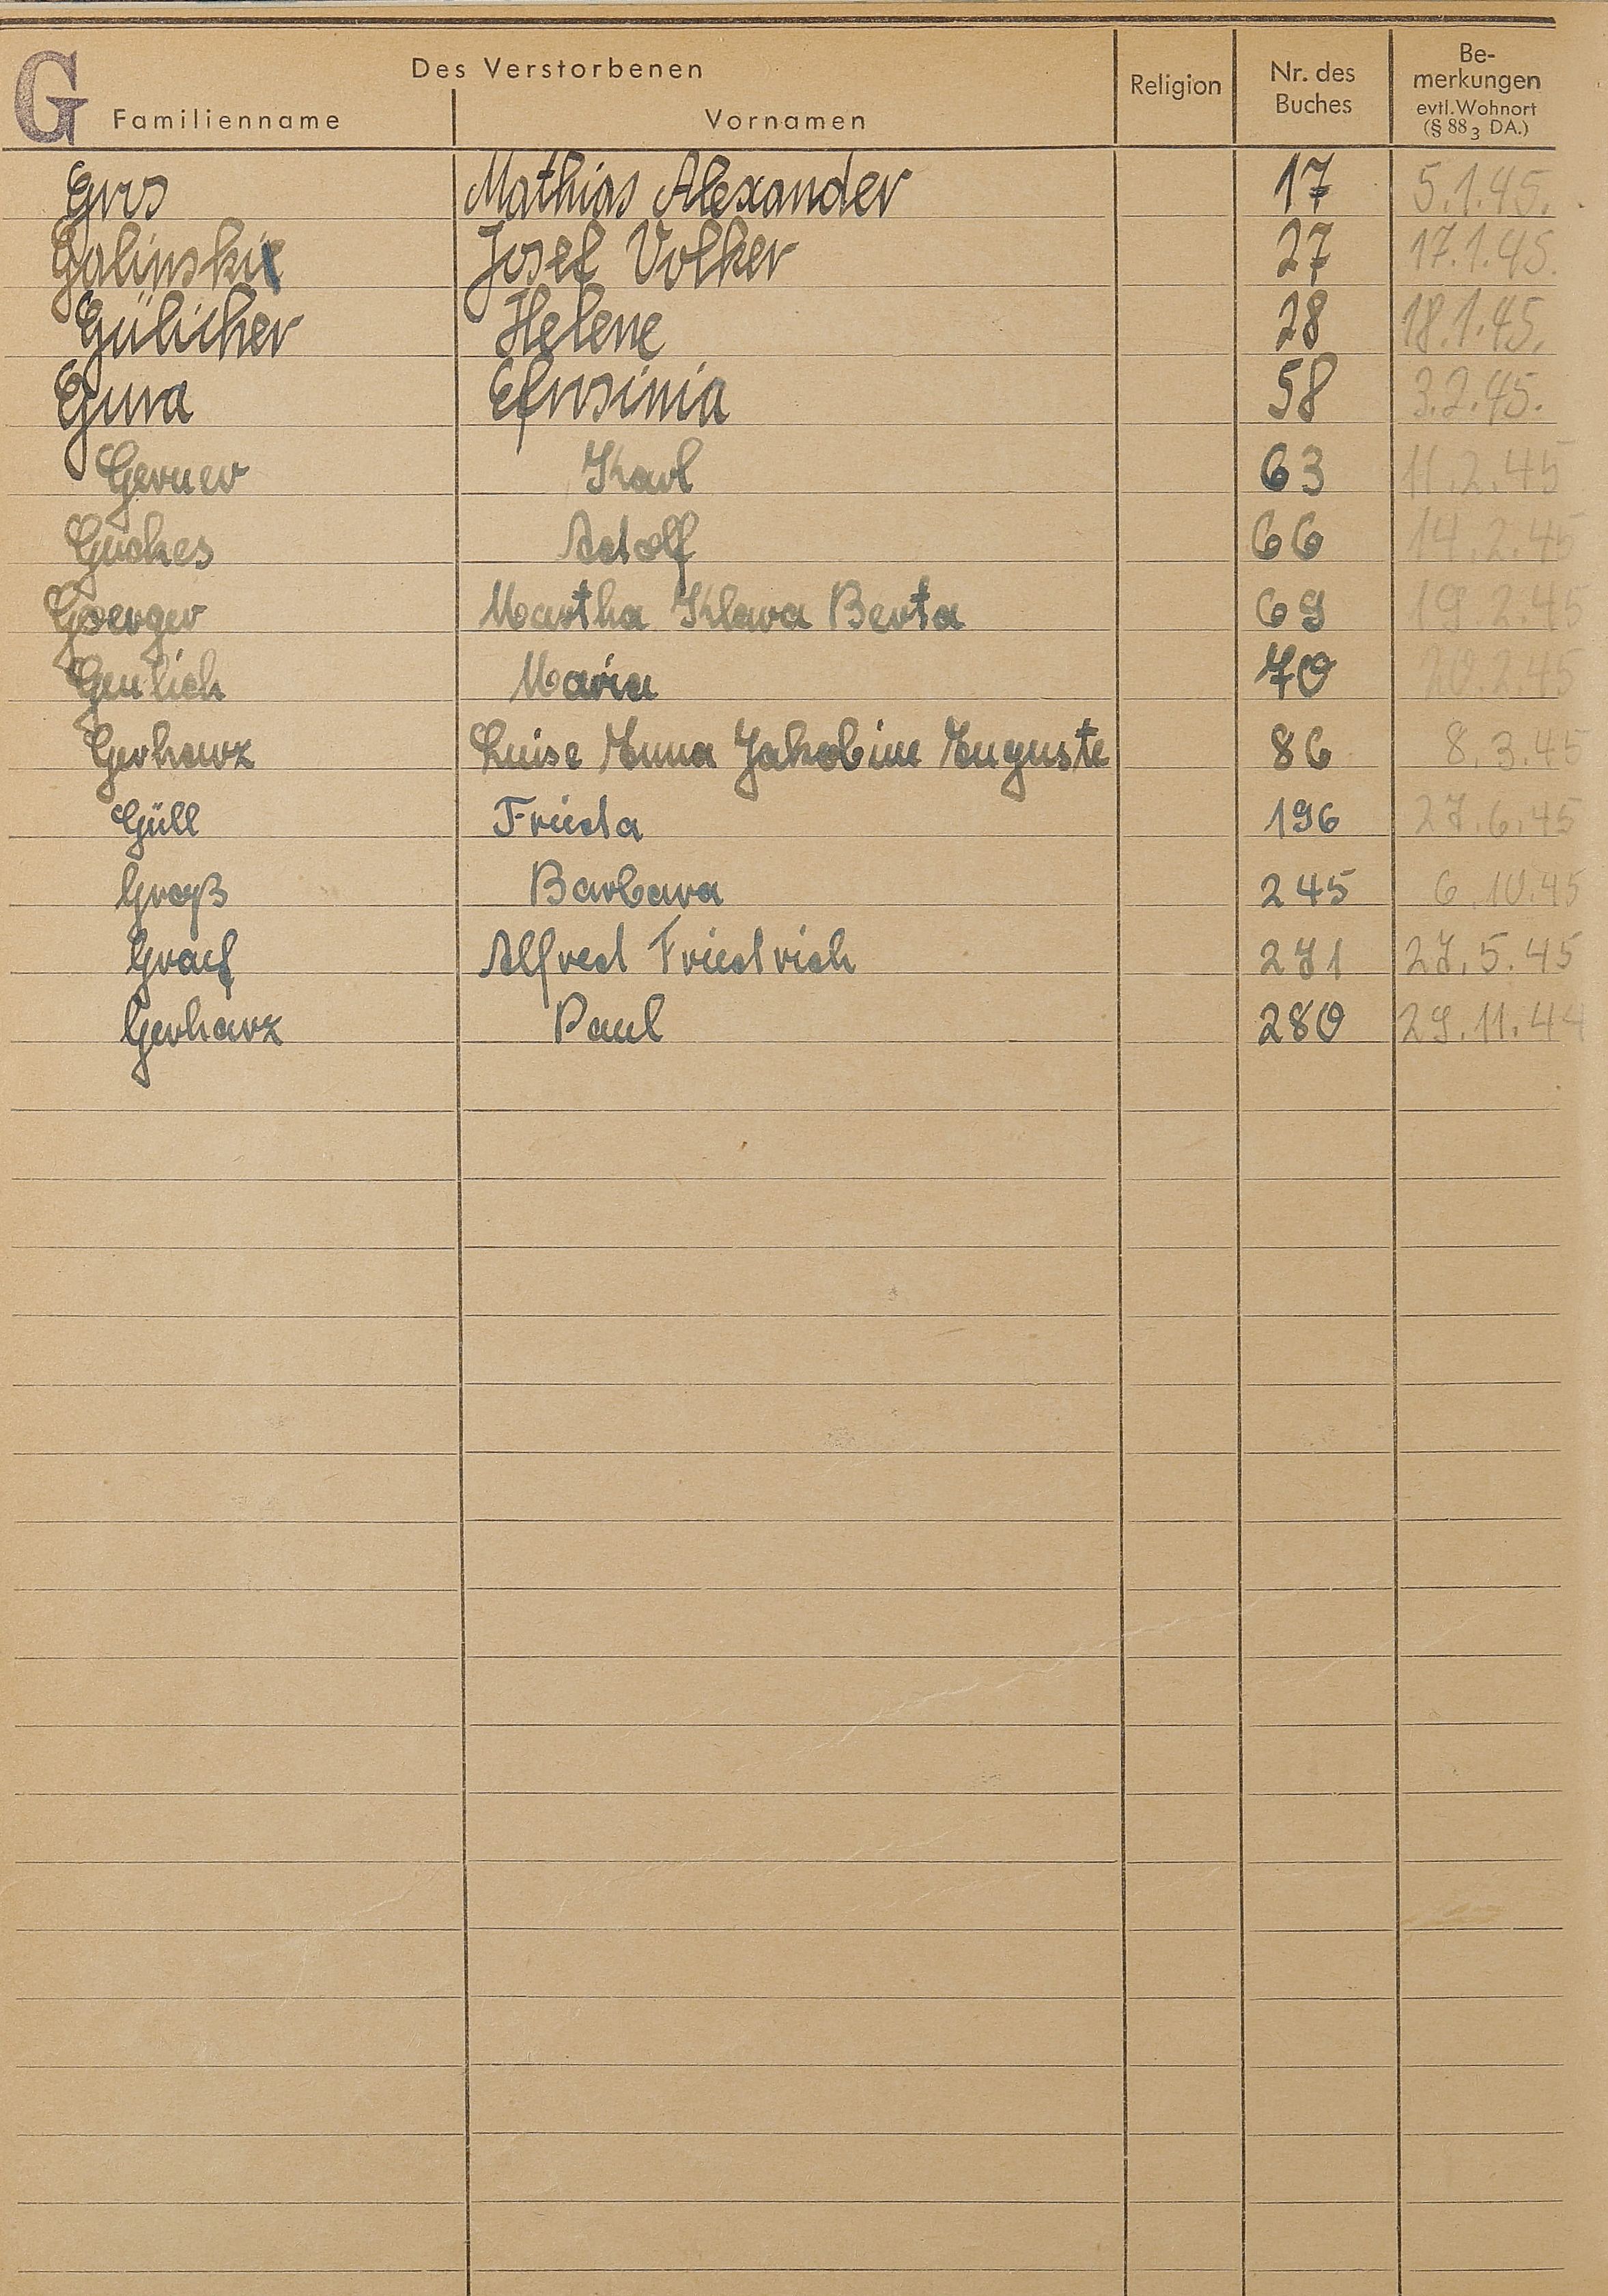 G
Des Verstorbenen
Familienname Vornamen Religion Nr. des Buches Be-merkungen evtl. Wohnort (§ 88 3 DA.)
Gros Mathias Alexander 17 5.1.45.
Galinski Josef Volker 27 17.1.45.
Gülicher Helene 28 18.1.45.
Gura Efrosinia 58 3.2.45.
Gerner Karl 63 11.2.45
Adolf 66 14.2.45
Martha Klara Berta 69 19.2.45
Maria 70 20.2.45
Gerharz Luise Anna Jakobine Auguste 86 8.3.45
Güll Frieda 196 27.6.45
Groß Barbara 245 6.10.45
Graef Alfred Friedrich 271 27.5.45
Gerharz Paul 280 29.11.44